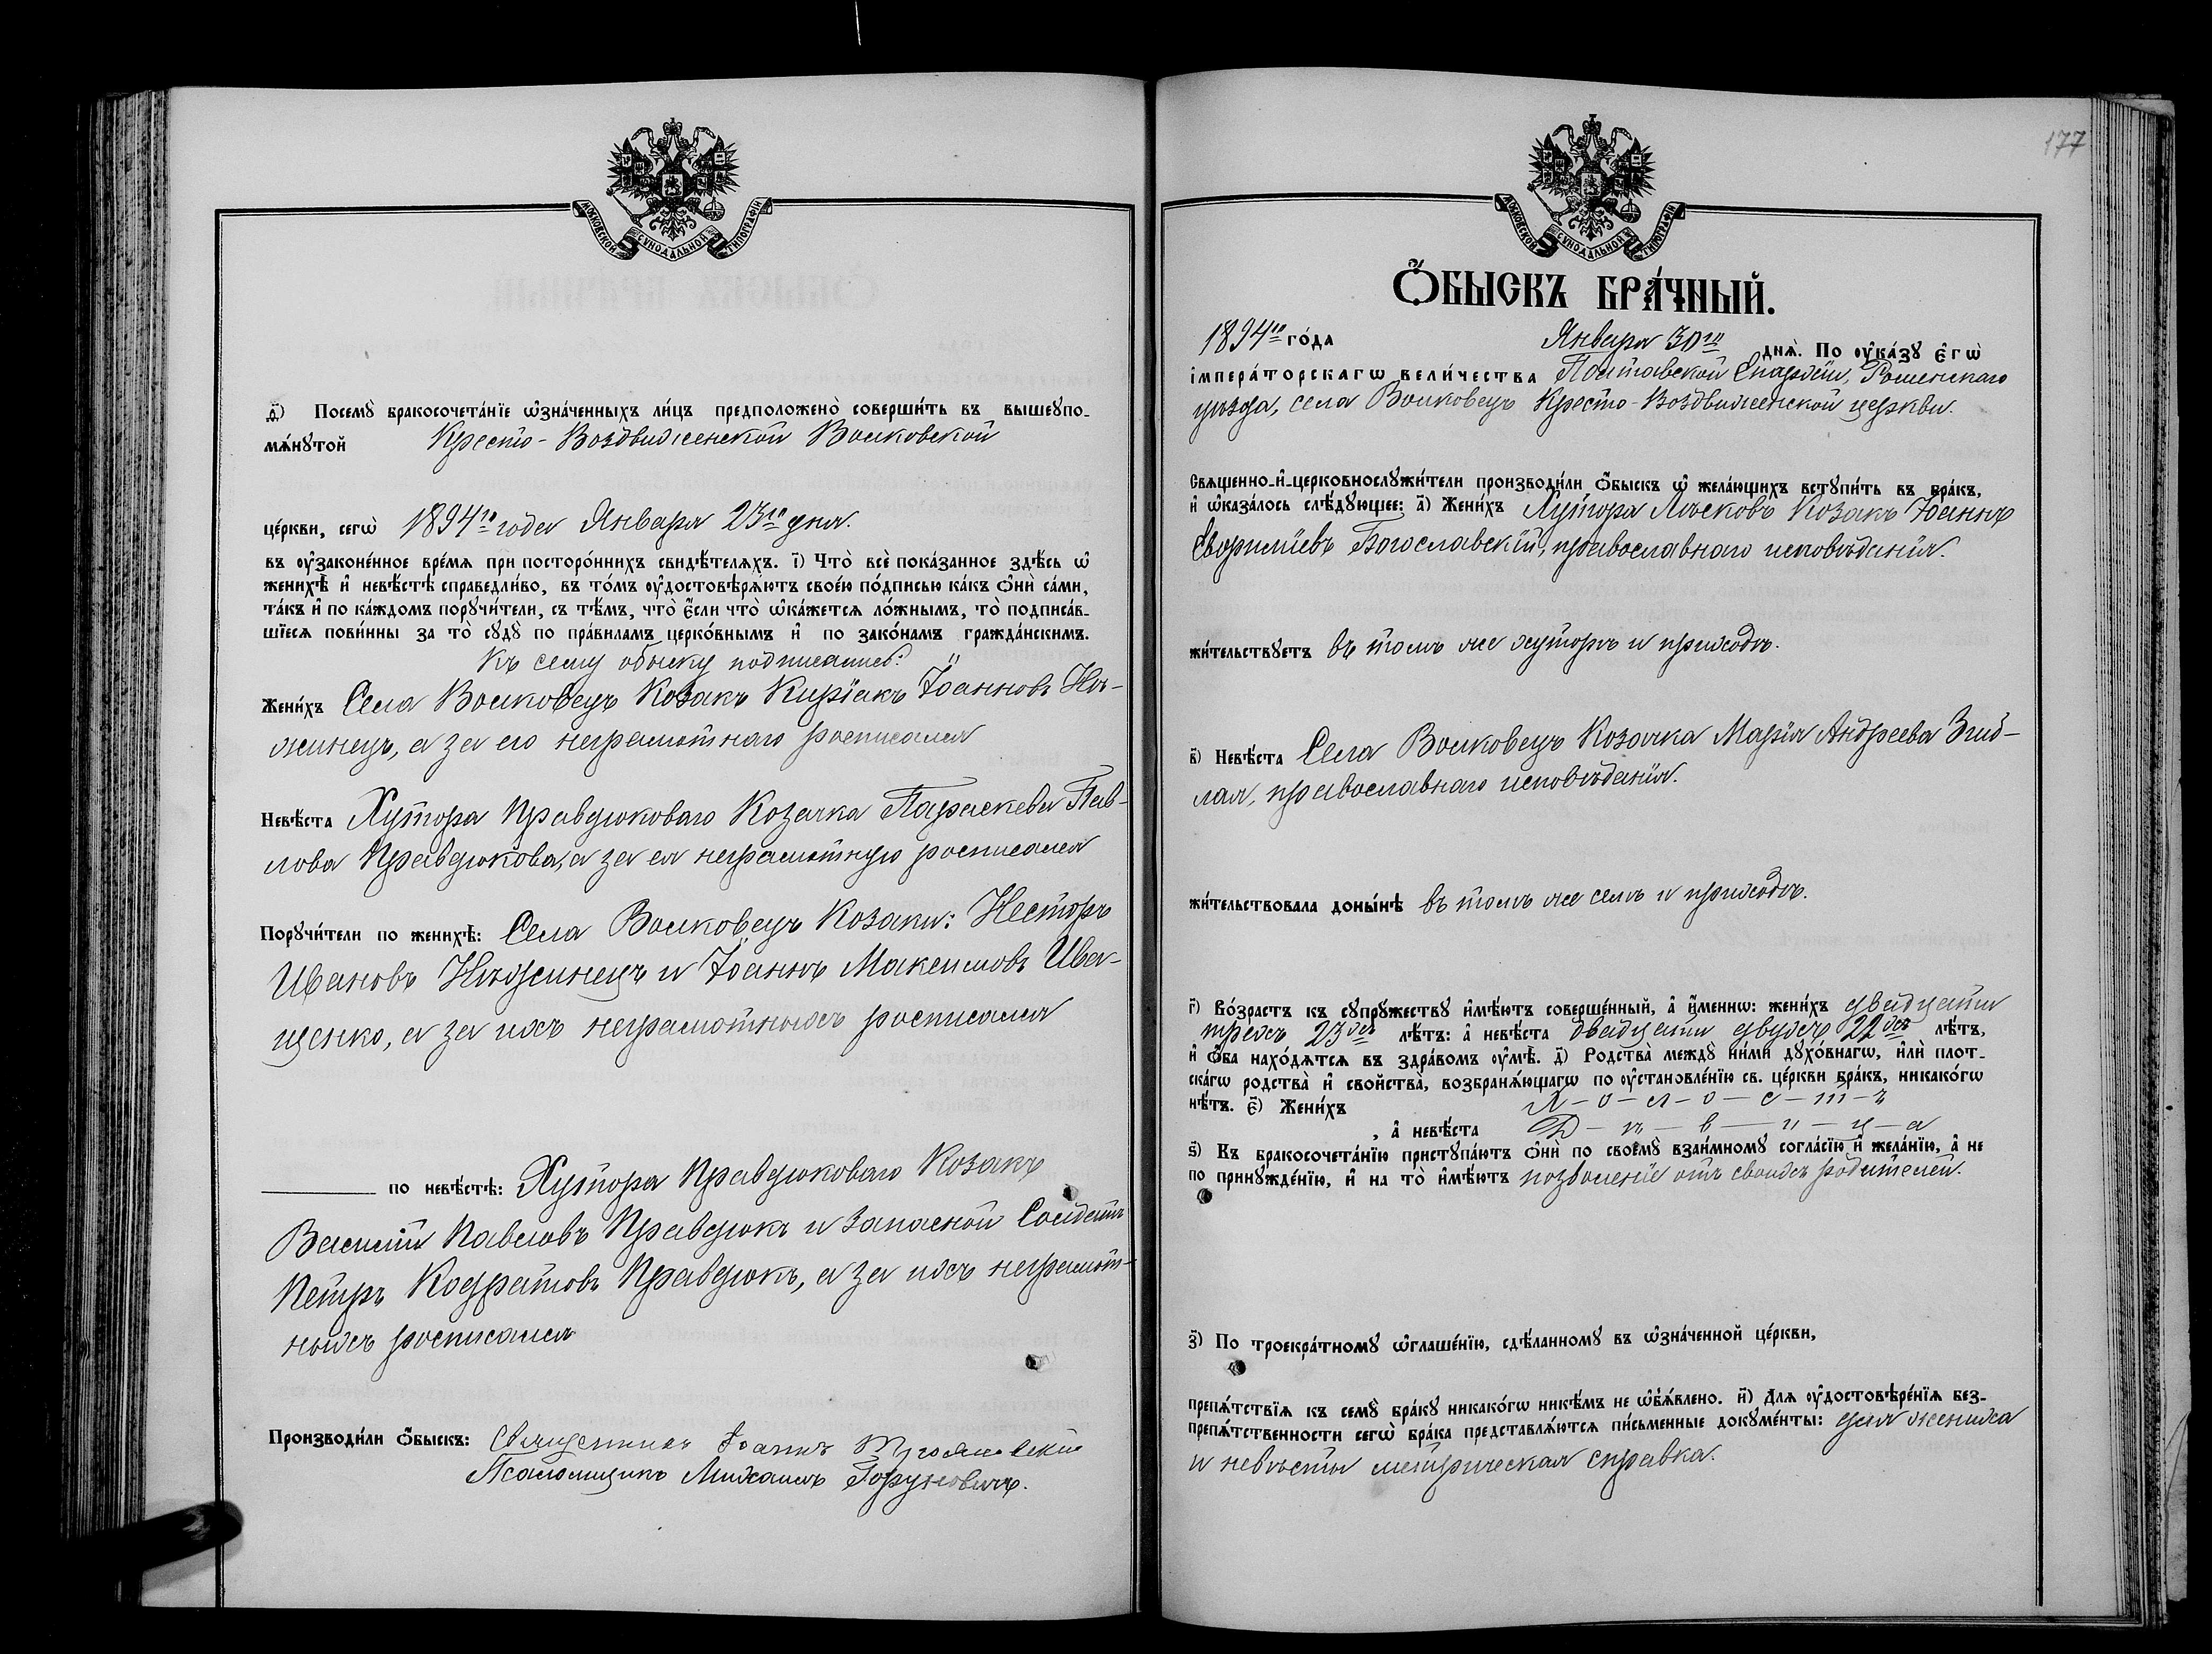 МОСКОВСКОЙ СѴНОДАЛЬНОЙ ТИПОГРАФІИ
Посемꙋ̀ бракосочета́нїе ѡ҆зна́ченныхъ ли́цъ предположено̀ соверши́ть въ вышеꙋпо-
мѧ́нꙋтой Кресто-Воздвиженской Волковской
це́ркви, сегѡ̀ 1894го года Января 23го дня.
въ ᲂу҆зако́ненное вре́мѧ при посторо́ннихъ свидѣ́телѧхъ. і҃) Что̀ всѐ пока́занное здѣ́сь ѡ҆
женихѣ̀ и҆ невѣ́стѣ справедли́во, въ то́мъ ᲂу҆достовѣрѧ́ютъ свое́ю по́дписью ка́къ ѻ҆нѝ са́ми,
та́къ и҆ по ка́ждомъ порꙋчи́тели, съ тѣ́мъ, что̀ є҆́сли что̀ ѡ҆ка́жетсѧ ло́жнымъ, то̀ подписа́в-
шїесѧ пови́нны за то̀ сꙋдꙋ̀ по пра́виламъ церко́внымъ и҆ по зако́намъ гражда́нскимъ.
Къ сему обыску подписались:
Жени́хъ Села Волковецъ Козакъ Киріакъ Іоанновъ Нѣ-
жинецъ, а за его неграмотнаго росписался
Невѣ́ста Хутора Правдюковаго Козачка Параскева Пав-
лова Правдюкова, а за ея неграмотную росписался
Порꙋчи́тели по женихѣ̀: Села Волковецъ Козаки: Несторъ
Ивановъ Нѣжинецъ и Іоаннъ Максимовъ Ива-
щенко, а за ихъ неграмотныхъ росписался
по невѣ́стѣ: Хутора Правдюковаго Козакъ
Василій Павловъ Правдюкъ и запасной Солдатъ
Петръ Кодратовъ Правдюкъ, а за ихъ неграмот-
ныхъ росписался
Производи́ли ѻ҆́быскъ: Священникъ Іоаннъ
Псаломщикъ Михаилъ Горуновичъ.
177
МОСКОВСКОЙ СѴНОДАЛЬНОЙ ТИПОГРАФІИ
Ѻ҆́БЫСКЪ БРА́ЧНЫЙ.
1894го го́да Января 30го днѧ̀. По ᲂу҆ка́зꙋ є҆гѡ̀
і҆мпера́торскагѡ вели́чества Полтавской Епархіи, Роменскаго
уѣзда, села Волковецъ Кресто-Воздвиженской церкви.
Свѧщенно-и҆-церковнослꙋжи́тели производи́ли ѻ҆́быскъ ѡ҆ жела́ющихъ встꙋпи́ть въ бра́къ,
и҆ ѡ҆каза́лось слѣ́дꙋющее: а҃) Жени́хъ Хутора Лысковъ Козакъ Іоаннъ
Богославскій, православнаго исповѣданія.
жи́тельствꙋетъ въ томъ же хуторѣ и приходѣ.
в҃) Невѣ́ста Села Волковецъ Козачка Марія Андреева Згиб-
лая, православнаго исповѣданія.
жи́тельствовала доны́нѣ въ томъ же селѣ и приходѣ.
г҃) Во́зрастъ къ сꙋпрꙋ́жествꙋ и҆мѣ́ютъ соверше́нный, а҆ и҆́меннѡ: жени́хъ двадцати
трехъ 23хъ лѣ́тъ: а҆ невѣ́ста двадцати двухъ 22хъ лѣ́тъ,
и҆ ѻ҆́ба нахо́дѧтсѧ въ здра́вомъ ᲂу҆мѣ̀. д҃) Родства̀ междꙋ̀ ни́ми дꙋхо́внагѡ, и҆лѝ плот-
ска́гѡ родства̀ и҆ сво́йства̀, возбранѧ́ющагѡ по ᲂу҆становле́нїю св. це́ркви бра́къ, никако́гѡ
нѣ́тъ. є҃) Жени́хъ Х-о-л-о-с-т-ъ
, а҆ невѣ́ста Д-ѣ-в-и-ц-а
ѕ҃) Къ бракосочета́нїю пристꙋпа́ютъ ѻ҆нѝ по своемꙋ̀ взаи́мномꙋ согла́сїю и҆ жела́нїю, а҆ не
по принꙋжде́нїю, и҆ на то̀ и҆мѣ́ютъ позволеніе отъ своихъ родителей.
з҃) По троекра́тномꙋ ѡ҆глаше́нїю, сдѣ́ланномꙋ въ ѡ҆зна́ченной це́ркви,
препѧ́тствїѧ къ семꙋ̀ бра́кꙋ никако́гѡ никѣ́мъ не ѡ҆б̾ѧ́влено. и҃) Длѧ ᲂу҆достовѣре́нїѧ без-
препѧ́тственности сегѡ̀ бра́ка представлѧ́ютсѧ пи́сьменные докꙋме́нты: для жениха
и невѣсты метрическая справка.